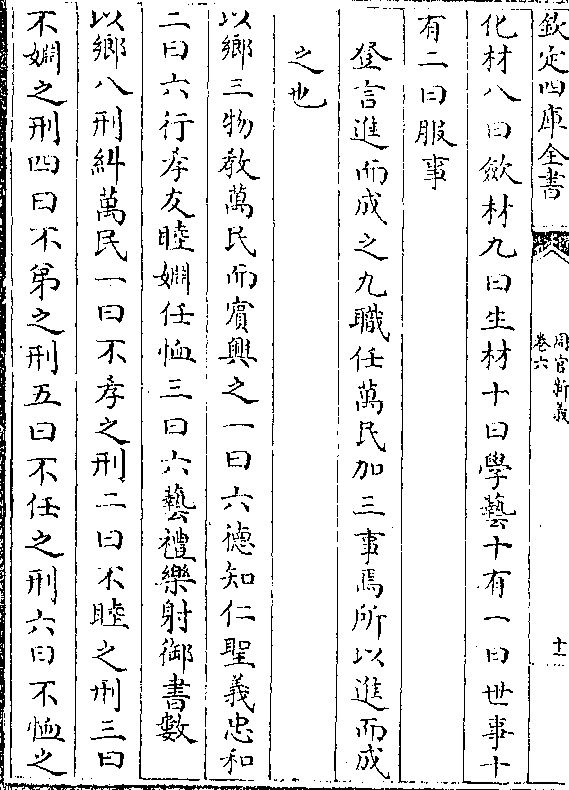 欽定四庫全書
周官新義
卷六
十一
化材八曰斂材九曰生材十曰學藝十有一曰世事十
有二曰服事
登言進而成之九職任萬民加三事焉所以進而成
之也
以鄉三物教萬民而賔興之一曰六德知仁聖義忠和
二曰六行孝友睦婣任恤三曰六藝禮樂射御書數
以鄉八刑糾萬民一曰不孝之刑二曰不睦之刑三曰
不婣之刑四曰不弟之刑五曰不任之刑六曰不恤之